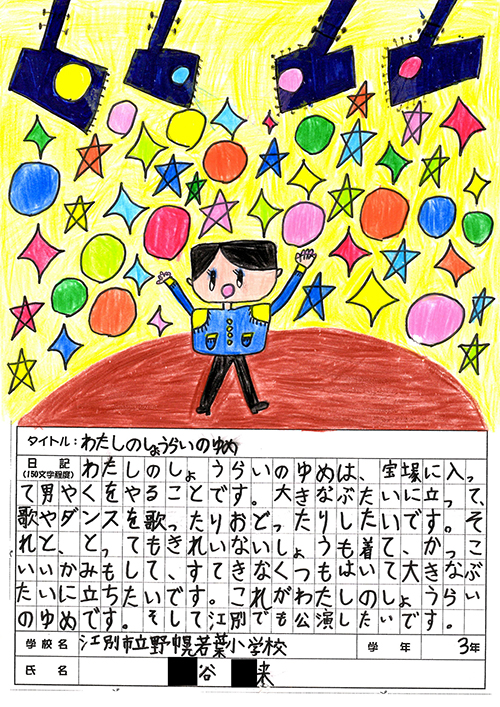 タイトル：わたしのしょうらいのゆめ
日記
(150文字程度)
わたしのしょうらいのゆめは、宝塚に入っ
て男やくをやることです。大きなぶたいに立って、
歌やダンスを歌ったりおどったりしたいです。そ
れと、とってもきれいないしょうも着て、かっこ
いいかみもして、すてきなくつもはいて大きなぶ
たいに立ちたいです。これがわたしのしょうらい
のゆめです。そして江別でも公演したいです。
学校名 江別市立野幌若葉小学校 学年 3年
氏名 谷 来